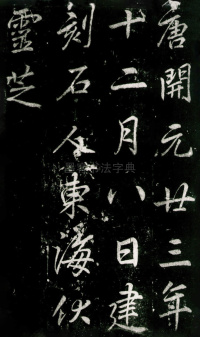 唐開元廿三年
十二月八日建
刻石人東海伏
靈芝